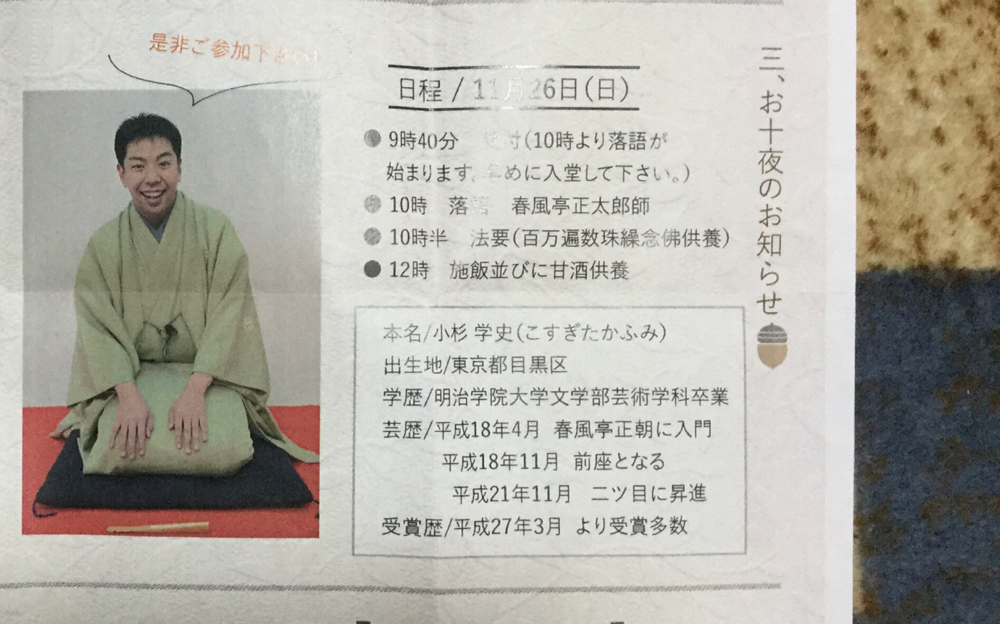 三、お十夜のお知らせ
是非ご参加下さい!
日程 / 11月26日(日)
● 9時40分 受付(10時より落語が
始まります。早めに入堂して下さい。)
● 10時 落語 春風亭正太郎師
● 10時半 法要(百万遍数珠繰念佛供養)
● 12時 施飯並びに甘酒供養
本名/小杉 学史(こすぎたかふみ)
出生地/東京都目黒区
学歴/明治学院大学文学部芸術学科卒業
芸歴/平成18年4月 春風亭正朝に入門
平成18年11月 前座となる
平成21年11月 二ツ目に昇進
受賞歴/平成27年3月 より受賞多数